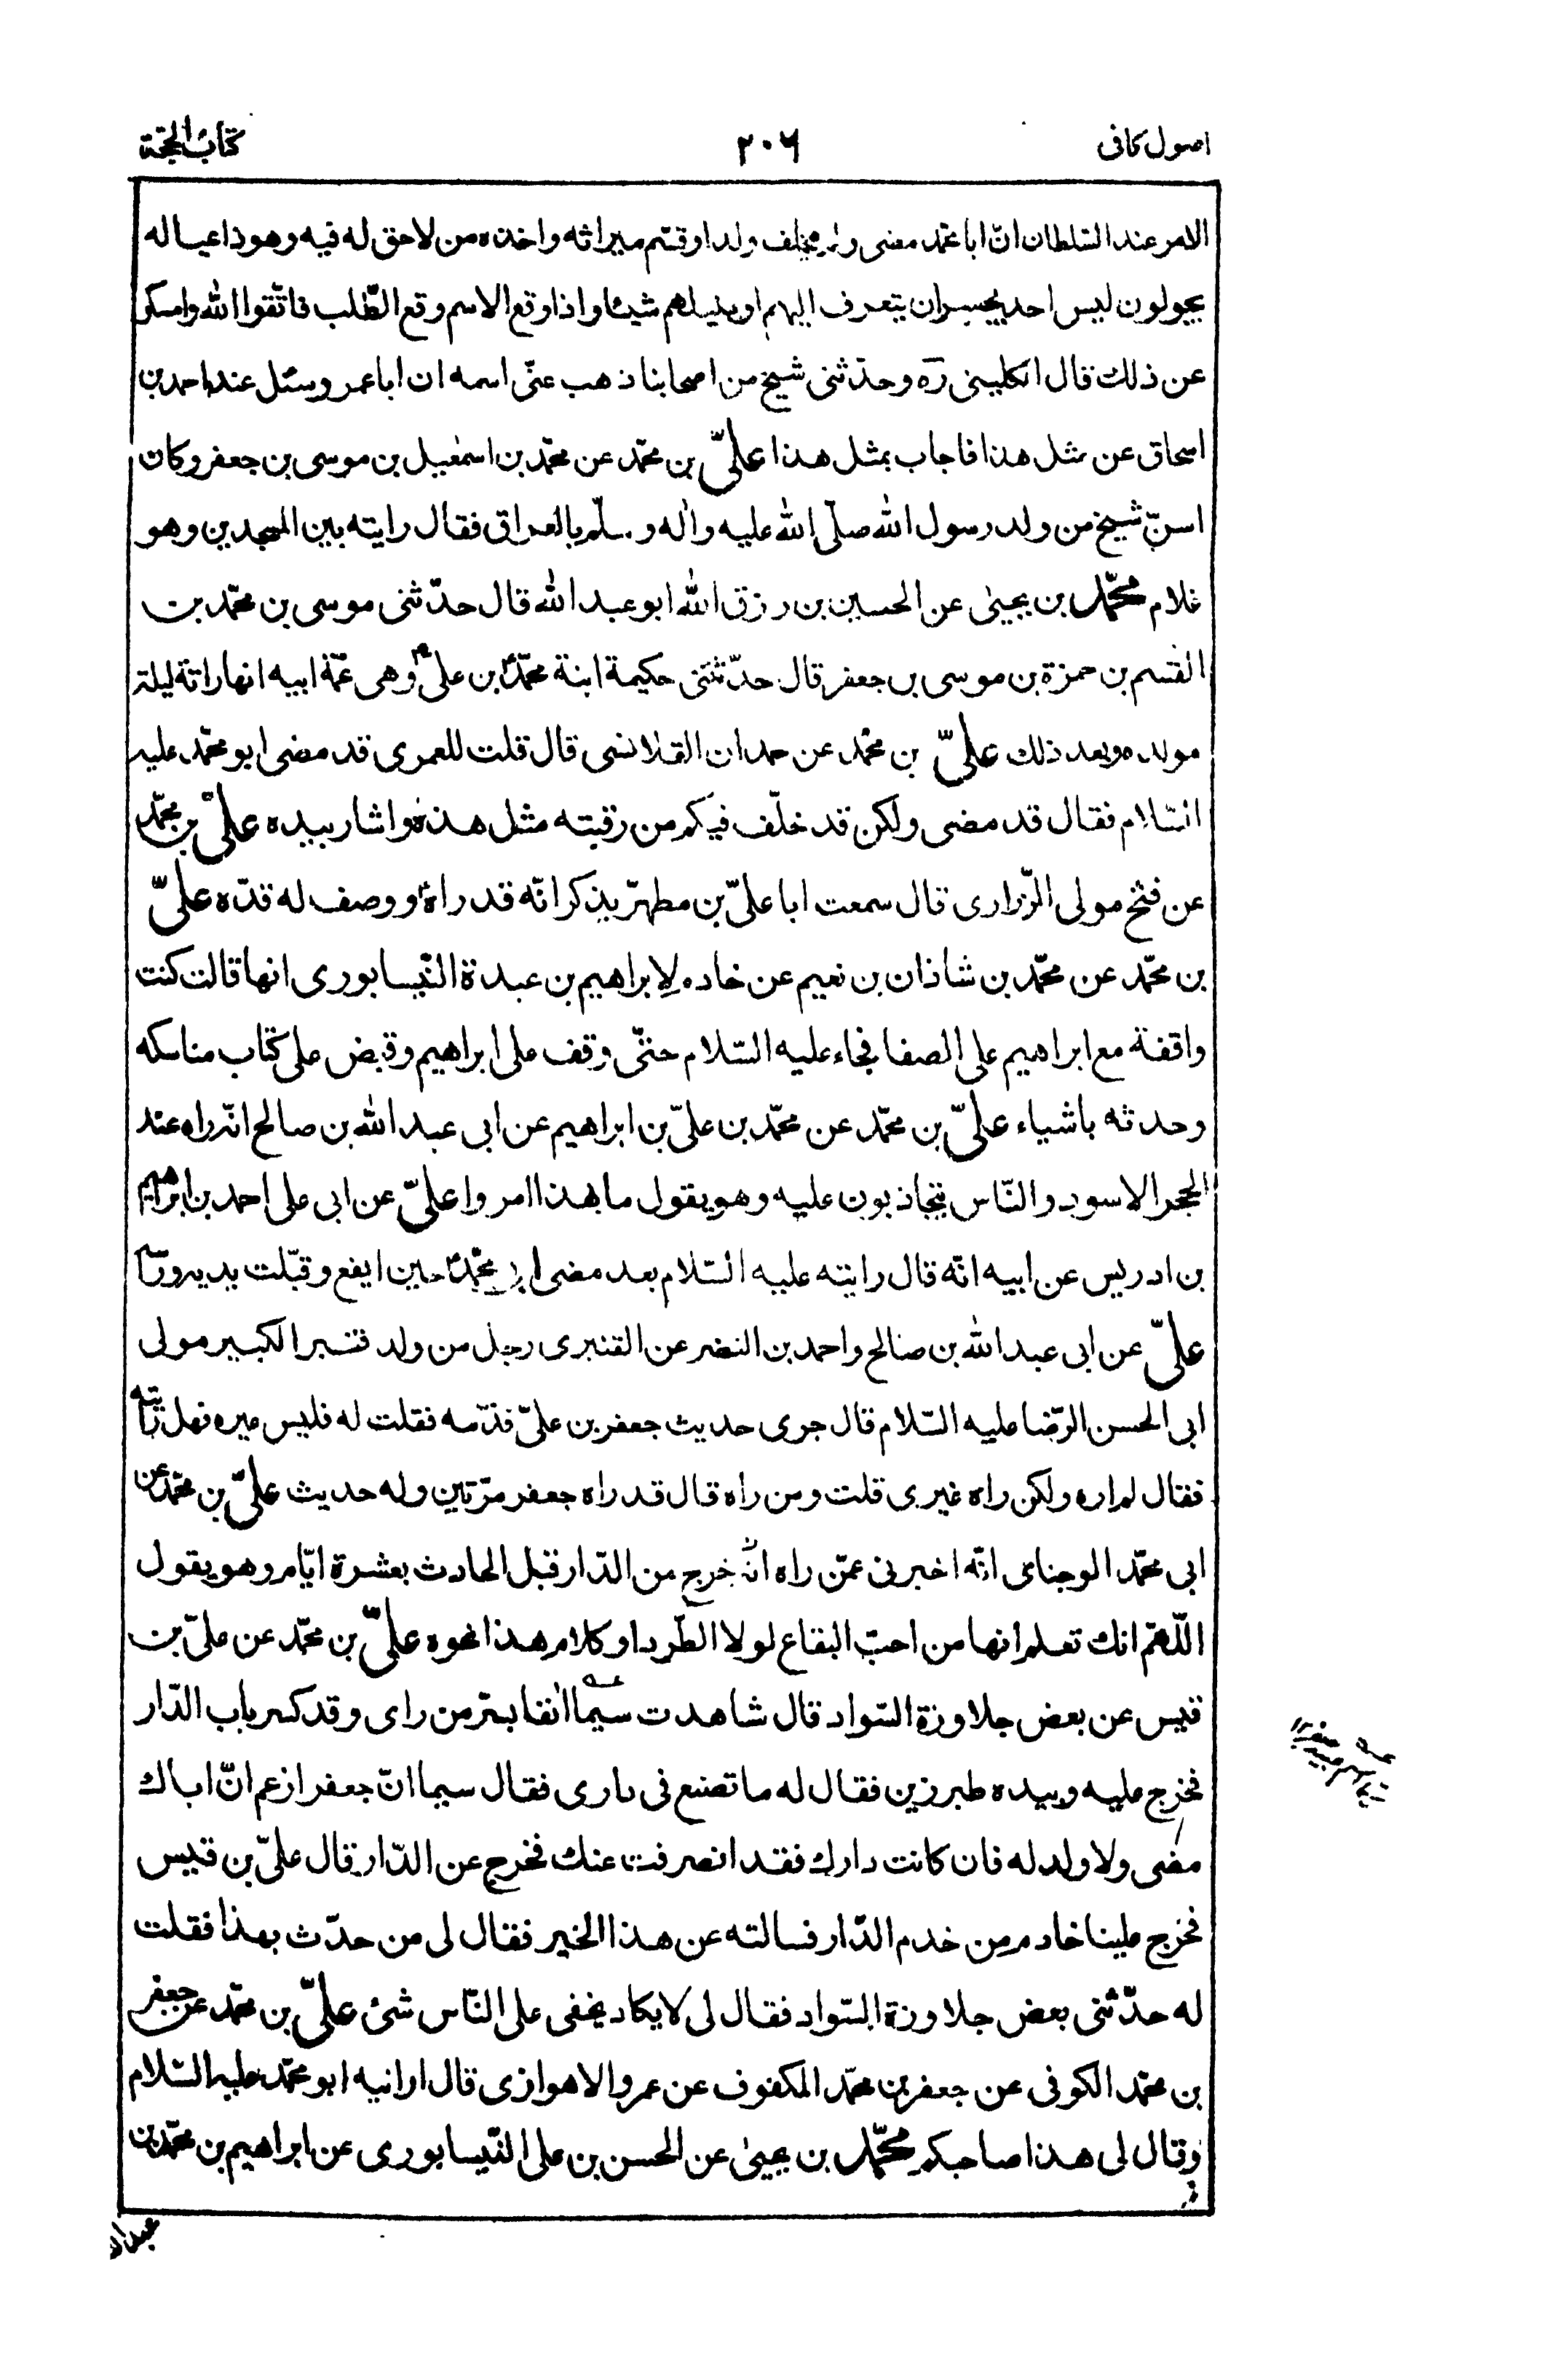 اصول كافى ٢٠٦ كتاب الحجة
الامر عند السّلطان انّ ابا محمّد مضى ولم يخلف ولدا وقسّم ميراثه واخذه من لاحق له فيه وهو ذا عياله
يجولون ليس احد يجسر ان يتعرف اليهم او ينيلهم شيئا واذا وقع الاسم وقع الطّلب فاتّقوا الله وامسكوا
عن ذلك قال الكلينى ره وحدّثنى شيخ من اصحابنا ذهب عنّى اسمه ان ابا عمرو سئل عند احمد بن
اسحاق عن مثل هذا فاجاب بمثل هذا علىّ بن محمّد عن محمّد بن اسمعيل بن موسى بن جعفر وكان
اسنّ شيخ من ولد رسول الله صلّى الله عليه واله وسلّم بالعراق فقال رايته بين المسجدين وهو
غلام محمّد بن يحيى عن الحسين بن رزق الله ابو عبد الله قال حدّثنى موسى بن محمّد بن
القسم بن حمزة بن موسى بن جعفر قال حدّثتنى حكيمة ابنة محمّد بن علىّ وهى عمّة ابيه انها راته ليلة
مولده وبعد ذلك علىّ بن محمّد عن حمدان القلانسى قال قلت للعمرى قد مضى ابو محمّد عليه
السّلام فقال قد مضى ولكن قد خلّف فيكم من رقبته مثل هذه واشار بيده علىّ بن محمّد
عن فتح مولى الزّرارى قال سمعت ابا علىّ بن مطهّر يذكر انّه قد راه ووصف له قدّه علىّ
بن محمّد عن محمّد بن شاذان بن نعيم عن خادم لابراهيم بن عبدة النّيسابورى انها قالت كنت
واقفة مع ابراهيم على الصفا فجاء عليه السّلام حتّى وقف على ابراهيم وقبض على كتاب مناسكه
وحدثه باشياء علىّ بن محمّد عن محمّد بن علىّ بن ابراهيم عن ابى عبد الله بن صالح انّه راه عند
الحجر الاسود والنّاس يتجاذبون عليه وهو يقول ما بهذا امروا علىّ عن ابى على احمد بن ابراهيم
بن ادريس عن ابيه انّه قال رايته عليه السّلام بعد مضى ابى محمّد حين ايفع وقبّلت يديه وراسه
علىّ عن ابى عبد الله بن صالح واحمد بن النضر عن القنبرى رجل من ولد قنبر الكبير مولى
ابى الحسن الرّضا عليه السّلام قال جرى حديث جعفر بن علىّ فذّمه فقلت له فليس غيره فهل رايته
فقال لم اره ولكن راه غيرى قلت ومن راه قال قد راه جعفر مرّتين وله حديث علىّ بن محمّد عن
ابى محمّد الوجناى انّه اخبرنى عمّن راه انّه خرج من الدّار قبل الحادث بعشرة ايّام وهو يقول
اللّهم انك تعلم انها من احبّ البقاع لولا الطّرد او كلام هذا نحوه علىّ بن محمّد عن علىّ بن
قيس عن بعض جلاوزة السّواد قال شاهدت سيما انفا بسرّ من راى وقد كسر باب الدّار
فخرج عليه وبيده طبرزين فقال له ما تصنع فى دارى فقال سيما انّ جعفرا زعم انّ اباك
مضى ولا ولد له فان كانت دارك فقد انصرفت عنك فخرج عن الدّار قال علىّ بن قيس
فخرج علينا خادم من خدم الدّار فسالته عن هذا الخبر فقال لى من حدّث بهذا فقلت
له حدّثنى بعض جلاوزة السّواد فقال لى لا يكاد يخفى على النّاس شئ علىّ بن محمّد عن جعفر
بن محمّد الكوفى عن جعفر بن محمّد المكفوف عن عمرو الاهوازى قال ارانيه ابو محمّد عليه السّلام
وقال لى هذا صاحبكم محمّد بن يحيى عن الحسن بن على النّيسابورى عن ابراهيم بن محمّد بن